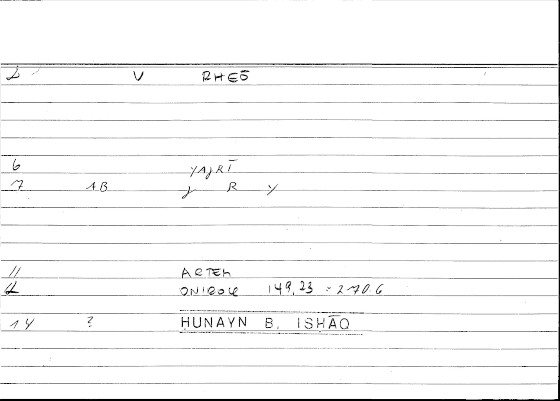 2 V RHEŌ
6 YAJRĪ
7 AB J R Y
11 ARTEM
ONIROK 149,23 = 270.6
14 ? HUNAYN B. ISHĀQ